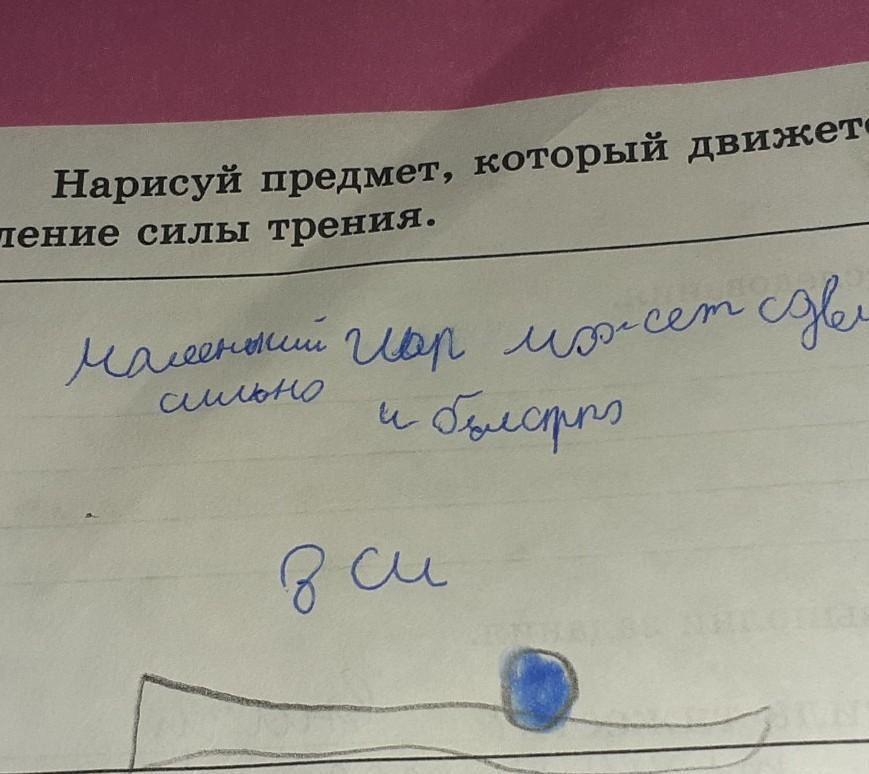 Нарисуй предмет, который движет
ление силы трения.
Маленький шар может сдви
сильно и быстро
см